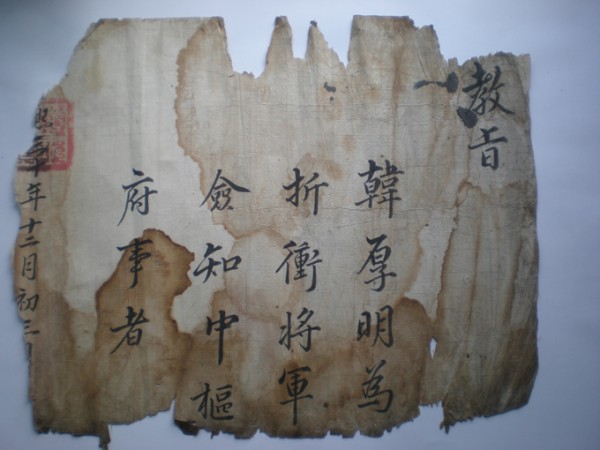 教旨
韓厚明為
折衝將軍
僉知中樞
府事者
十年十二月初三